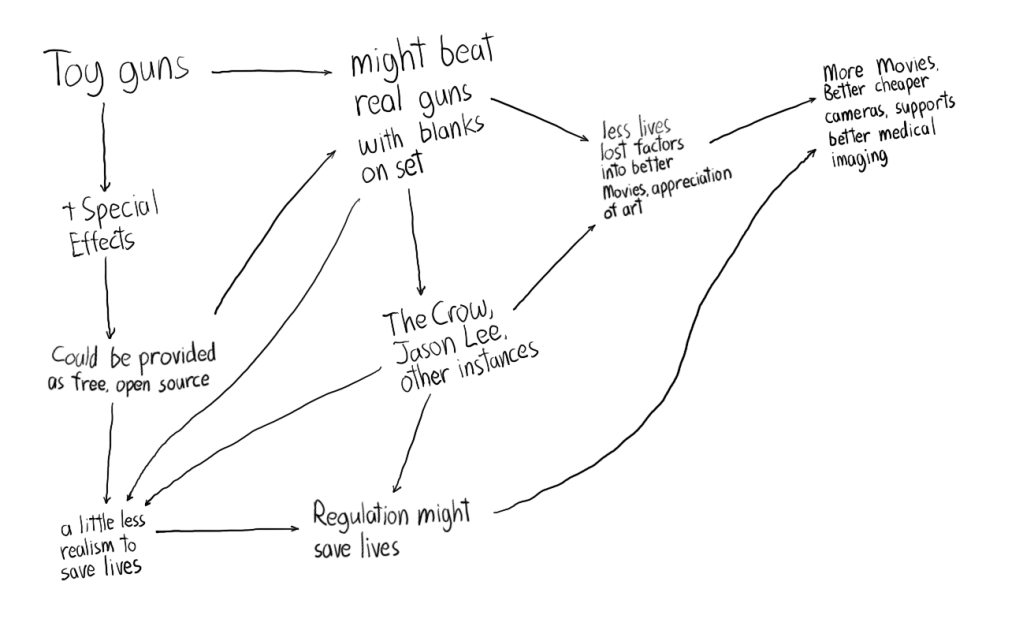 Toy guns
might beat
real guns
with blanks
on set
More Movies.
Better cheaper
cameras, supports
better medical
imaging
less lives
lost factors
into better
Movies, appreciation
of art
+ Special
Effects
The Crow,
Jason Lee,
other instances
Could be provided
as free, open source
a little less
realism to
save lives
Regulation might
save lives